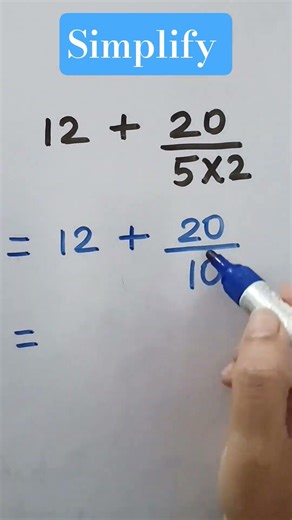 Simplify
12 + 20/5×2
= 12 + 20/10
=